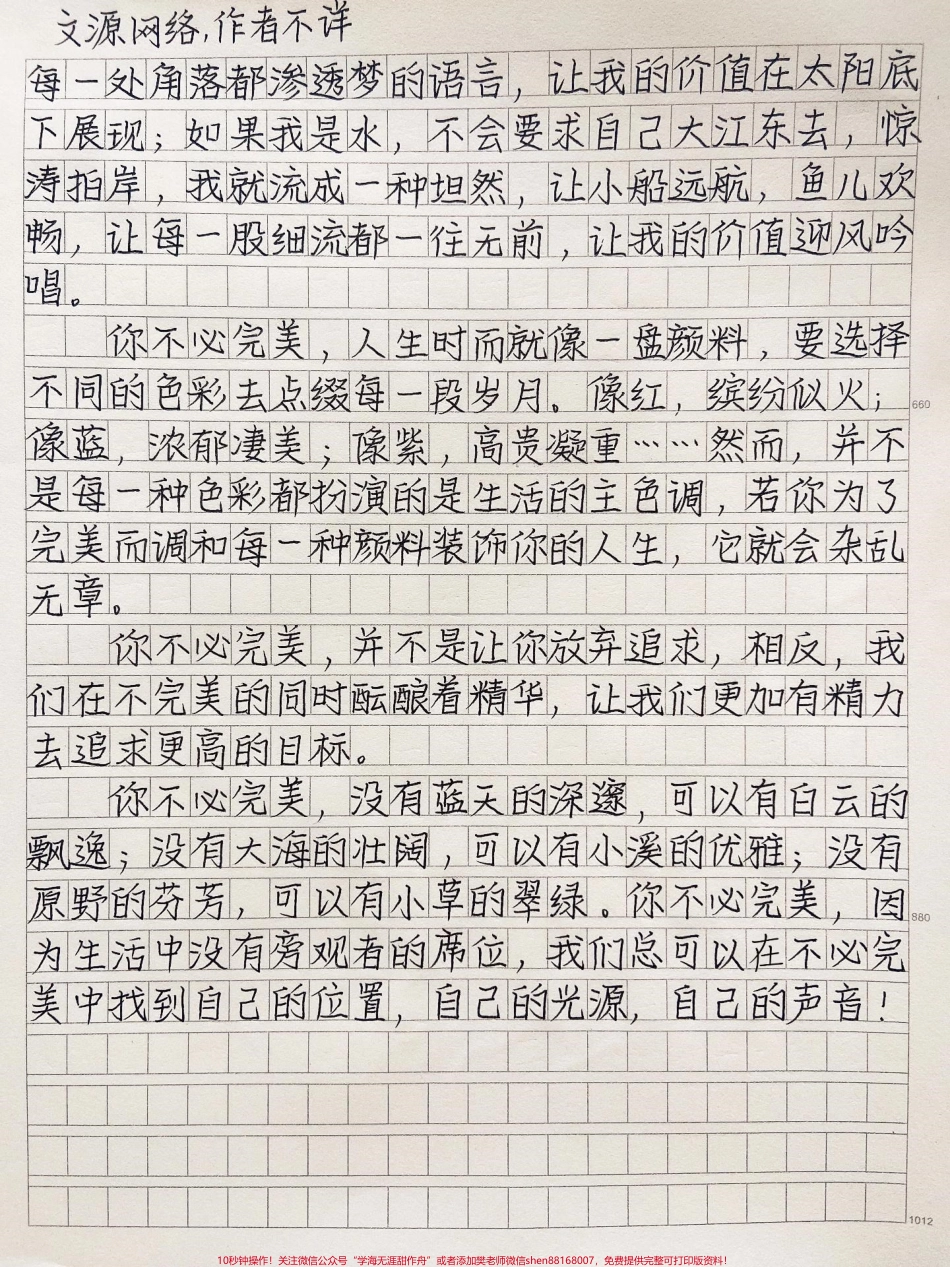 文源网络,作者不详
每一处角落都渗透梦的语言，让我的价值在太阳底
下展现；如果我是水，不会要求自己大江东去，惊
涛拍岸，我就流成一种坦然，让小船远航，鱼儿欢
畅，让每一股细流都一往无前，让我的价值迎风吟
唱。
你不必完美，人生时而就像一盘颜料，要选择
不同的色彩去点缀每一段岁月。像红，缤纷似火；
660
像蓝，浓郁凄美；像紫，高贵凝重……然而，并不
是每一种色彩都扮演的是生活的主色调，若你为了
完美而调和每一种颜料装饰你的人生，它就会杂乱
无章。
你不必完美，并不是让你放弃追求，相反，我
们在不完美的同时酝酿着精华，让我们更加有精力
去追求更高的目标。
你不必完美，没有蓝天的深邃，可以有白云的
飘逸；没有大海的壮阔，可以有小溪的优雅；没有
原野的芬芳，可以有小草的翠绿。你不必完美，因
880
为生活中没有旁观者的席位，我们总可以在不必完
美中找到自己的位置，自己的光源，自己的声音！
1012
10秒钟操作！关注微信公众号“学海无涯甜作舟”或者添加樊老师微信shen88168007，免费提供完整可打印版资料！